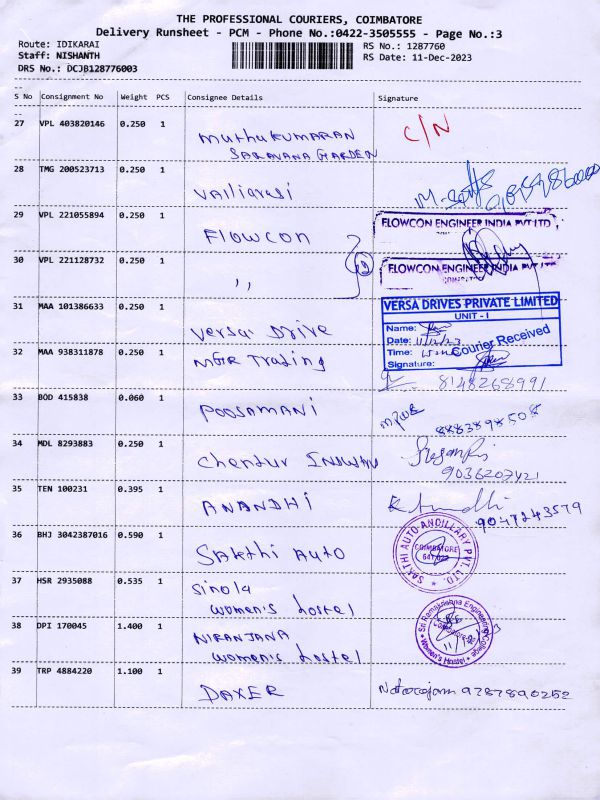 THE PROFESSIONAL COURIERS, COIMBATORE
Delivery Runsheet - PCM - Phone No.:0422-3505555 - Page No.:3
Route: IDIKARAI
RS No.: 1287760
Staff: NISHANTH
RS Date: 11-Dec-2023
DRS No.: DCJB128776003
S No Consignment No Weight PCS Consignee Details Signature
27 VPL 403820146 0.250 1
Muthukumaran
Saravana Garden
C/N
28 TMG 200523713 0.250 1
Valliarasi
29 VPL 221055894 0.250 1
Flowcon
FLOWCON ENGINEER INDIA PVT LTD
30 VPL 221128732 0.250 1
,,
FLOWCON ENGINEER INDIA PVT LTD
31 MAA 101386633 0.250 1
Versa Drive
VERSA DRIVES PRIVATE LIMITED
UNIT - I
Name:
Date: 11/12/23
Time:
Courier Received
Signature:
32 MAA 938311878 0.250 1
MGR Trading
8148268991
33 BOD 415838 0.060 1
Poosamani
8883898508
34 MDL 8293883 0.250 1
Chendur
9036207421
35 TEN 100231 0.395 1
Anandhi
9047243579
36 BHJ 3042387016 0.590 1
Sakthi Auto
SAKTHI AUTO ANCILLARY PVT. LTD.
COIMBATORE
641 022
37 HSR 2935088 0.535 1
women's hostel
38 DPI 170045 1.400 1
Niranjana
women's hostel
Sri Ramakrishna Engineering College
Women's Hostel
39 TRP 4884220 1.100 1
Daxer
Natarajan 9787890252